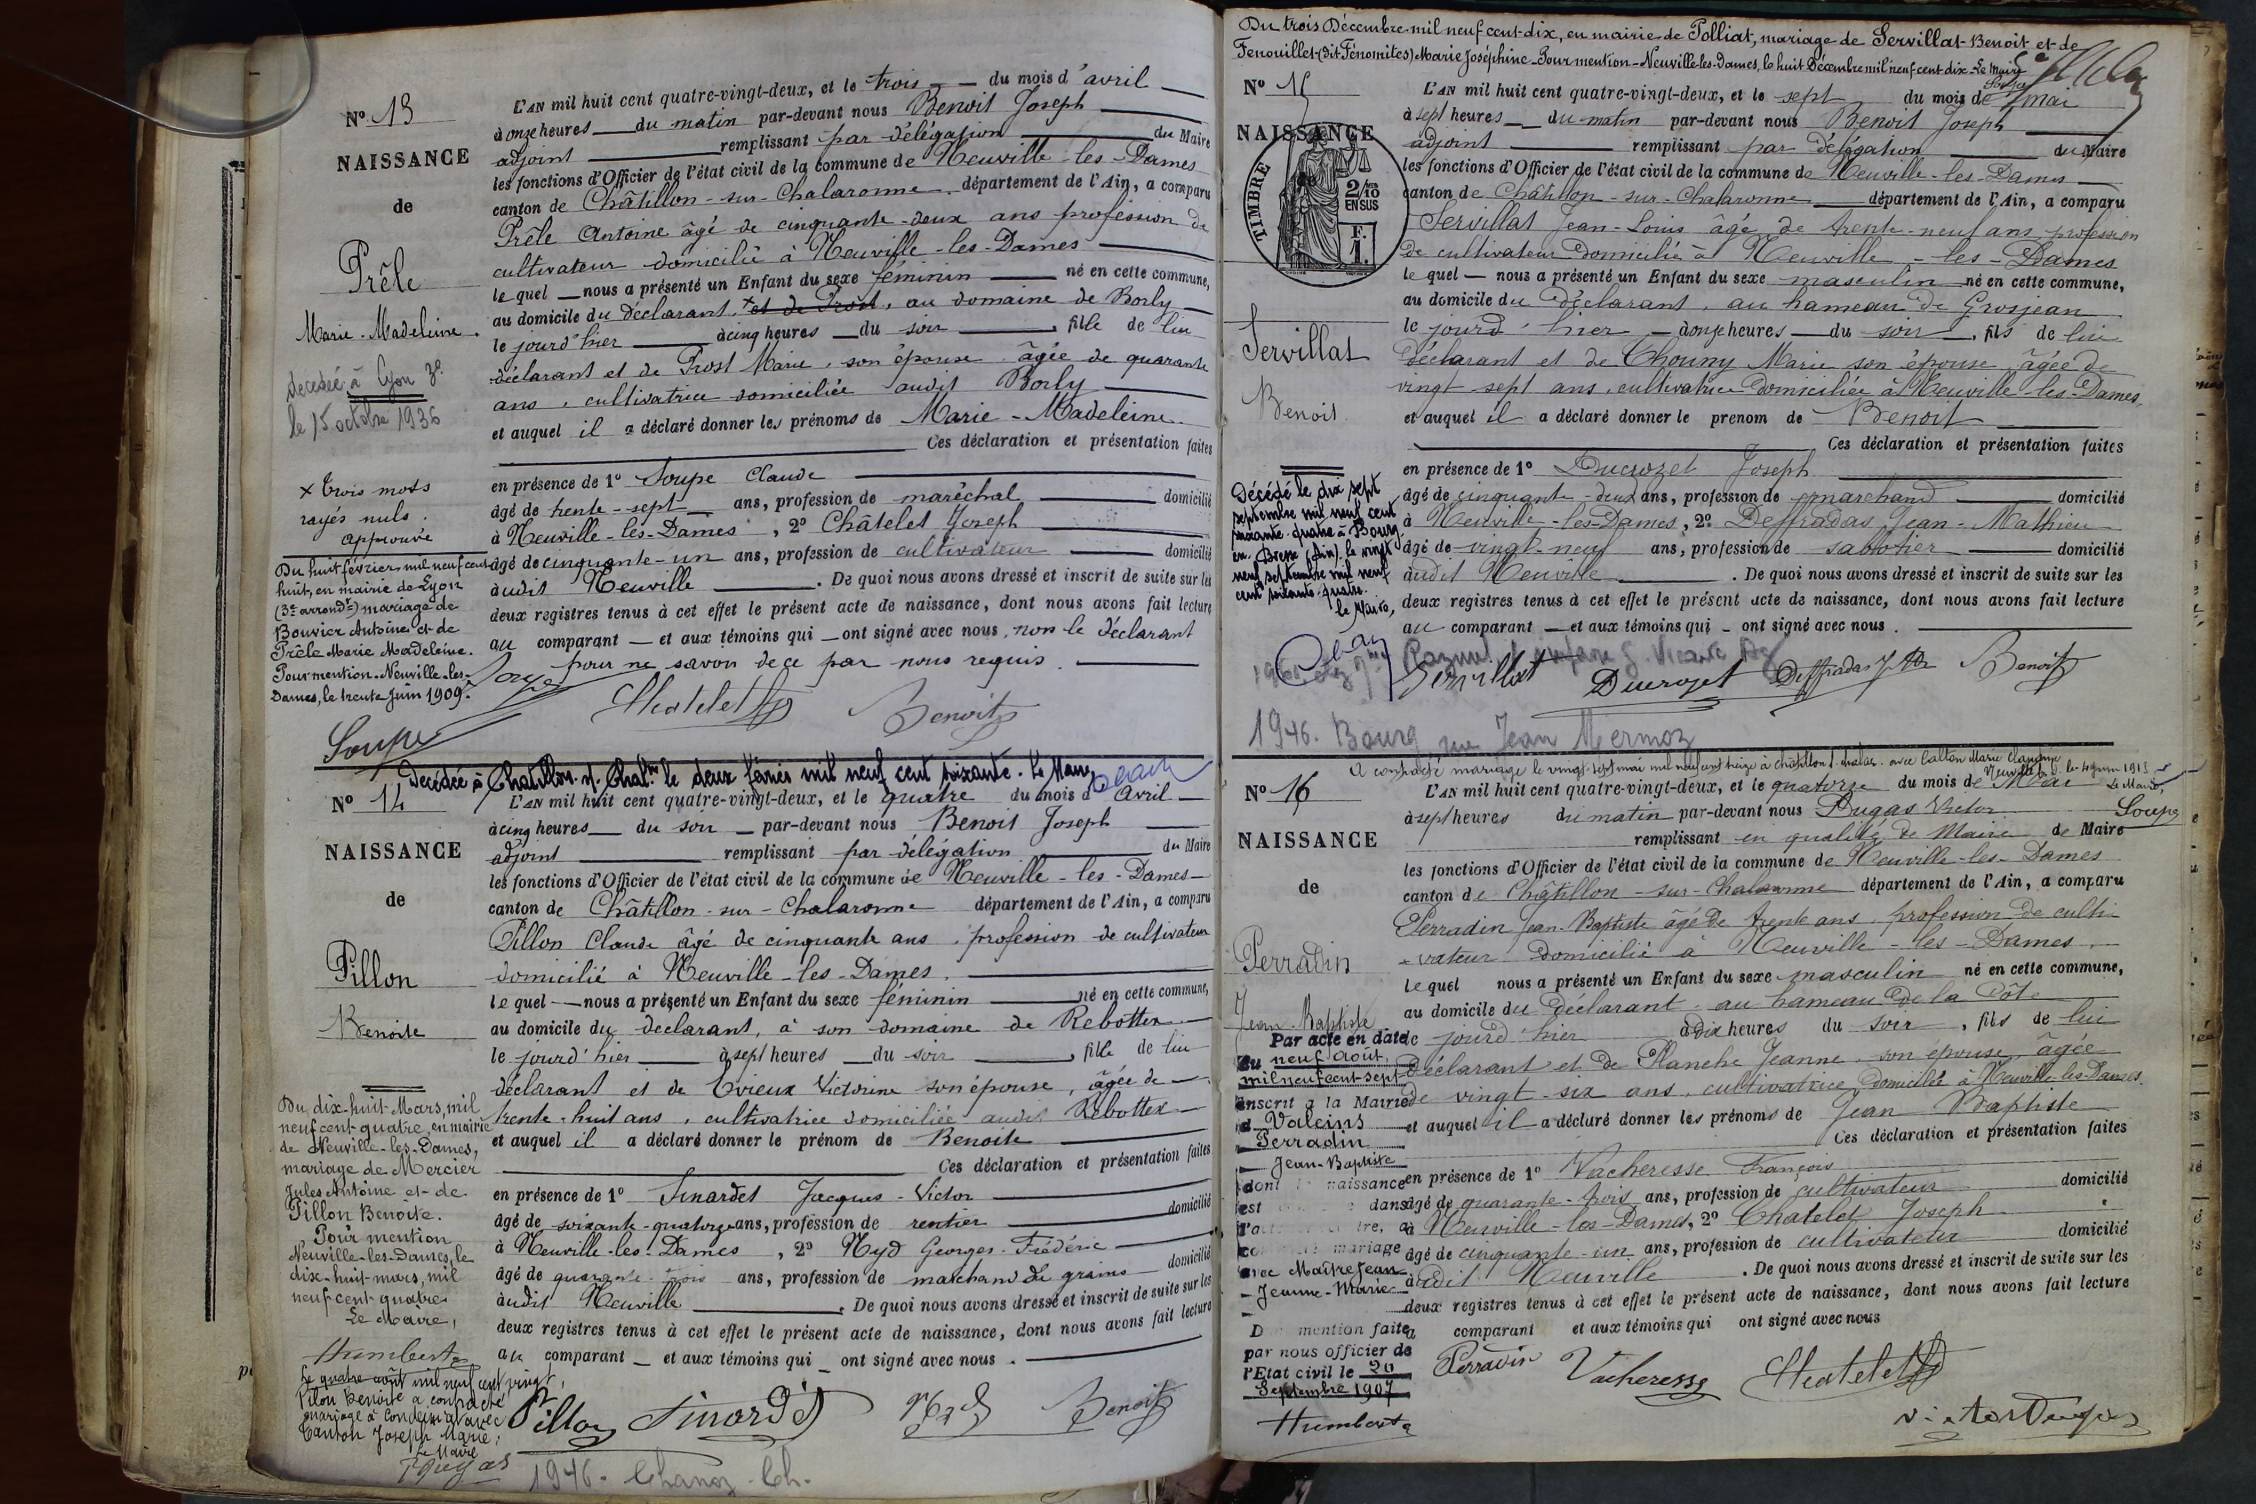 Nº 13
NAISSANCE
de
Prêle
Marie-Madeleine.
décédée à Lyon 3e
le 15 octobre 1936
x trois mots
rayés nuls.
approuvé
Du huit février mil neuf cent
huit, en mairie de Lyon
(3e arrondt) mariage de
Bouvier Antoine et de
Prêle Marie Madeleine.
Pour mention. Neuville-les-
Dames, le trente Juin 1909.
Soupe
L'AN mil huit cent quatre-vingt-deux, et le trois du mois d'avril
à onze heures du matin par-devant nous Benoit Joseph
adjoint remplissant par délégation du Maire
les fonctions d'Officier de l'état civil de la commune de Neuville-les-Dames
canton de Châtillon-sur-Chalaronne département de l'Ain, a comparu
Prêle Antoine âgé de cinquante-deux ans profession de
cultivateur domicilié à Neuville-les-Dames
le quel nous a présenté un Enfant du sexe féminin né en cette commune,
au domicile du déclarant, x et de Prost, au domaine de Borly
le jourd'hier à cinq heures du soir, fille de lui
déclarant et de Prost Marie, son épouse âgée de quarante
ans, cultivatrice domiciliée audit Borly
et auquel il a déclaré donner les prénoms de Marie-Madeleine
Ces déclaration et présentation faites
en présence de 1º Soupe Claude
âgé de trente-sept ans, profession de maréchal domicilié
à Neuville-les-Dames, 2º Châtelet Joseph
âgé de cinquante-un ans, profession de cultivateur domicilié
audit Neuville. De quoi nous avons dressé et inscrit de suite sur les
deux registres tenus à cet effet le présent acte de naissance, dont nous avons fait lecture
au comparant et aux témoins qui ont signé avec nous, non le déclarant
pour ne savoir de ce par nous requis.
Soupe Chatelet Benoit
Décédée à Chatillon s/ Chalne le deux février mil neuf cent soixante. Le Maire
Nº 14
NAISSANCE
de
Pillon
Benoite
Du dix-huit Mars, mil
neuf cent quatre, en mairie
de Neuville-les-Dames,
mariage de Mercier
Jules Antoine et de
Pillon Benoite.
Pour mention
Neuville-les-Dames, le
dix-huit mars, mil
neuf cent quatre
Le Maire,
Humbert
Le quatre août mil neuf cent vingt,
Pilon Benoite a contracté
mariage à Condeissiat avec
Canton Joseph Marie,
Le Maire
L'AN mil huit cent quatre-vingt-deux, et le quatre du mois d'Avril
à cinq heures du soir par-devant nous Benoit Joseph
adjoint remplissant par délégation du Maire
les fonctions d'Officier de l'état civil de la commune de Neuville-les-Dames
canton de Châtillon-sur-Chalaronne département de l'Ain, a comparu
Pillon Claude âgé de cinquante ans, profession de cultivateur
domicilié à Neuville-les-Dames.
le quel nous a présenté un Enfant du sexe féminin né en cette commune,
au domicile du déclarant, à son domaine de Rebottex
le jourd'hier à sept heures du soir, fille de lui
déclarant et de Evieux Victorine son épouse, âgée de
trente-huit ans, cultivatrice domiciliée audit Rebottex
et auquel il a déclaré donner le prénom de Benoite
Ces déclaration et présentation faites
en présence de 1º Sinardet Jacques-Victor
âgé de soixante-quatorze ans, profession de rentier domicilié
à Neuville-les-Dames, 2º Nyd Georges-Frédéric
âgé de quarante-trois ans, profession de marchand de grains domicilié
audit Neuville. De quoi nous avons dressé et inscrit de suite sur les
deux registres tenus à cet effet le présent acte de naissance, dont nous avons fait lecture
au comparant et aux témoins qui ont signé avec nous.
Pillon Sinardet Nyd Benoit
1946. Chanoz-Ch.
Du trois Décembre mil neuf cent-dix, en mairie de Polliat, mariage de Servillat Benoit et de
Fenouillet (dit Fénomites) Marie Joséphine. Pour mention. Neuville-les-Dames, le huit Décembre mil neuf-cent dix. Le Maire
Nº 15
NAISSANCE
de
TIMBRE
2/10 EN SUS
F. 1.
Servillat
Benoit
Décédé le dix sept
septembre mil neuf cent
soixante-quatre à Bourg
en Bresse (Ain), le vingt
neuf septembre mil neuf
cent soixante-quatre.
le Maire,
L'AN mil huit cent quatre-vingt-deux, et le sept du mois de mai
à sept heures du matin par-devant nous Benoit Joseph
adjoint remplissant par délégation du Maire
les fonctions d'Officier de l'état civil de la commune de Neuville-les-Dames
canton de Châtillon-sur-Chalaronne département de l'Ain, a comparu
Servillat Jean-Louis âgé de trente-neuf ans profession
de cultivateur domicilié à Neuville-les-Dames
le quel nous a présenté un Enfant du sexe masculin né en cette commune,
au domicile du déclarant, au hameau de Grosjean
le jourd'hier à onze heures du soir, fils de lui
déclarant et de Chouny Marie son épouse âgée de
vingt sept ans, cultivatrice domiciliée à Neuville-les-Dames
et auquel il a déclaré donner le prenom de Benoit
Ces déclaration et présentation faites
en présence de 1º Ducrozet Joseph
âgé de cinquante-deux ans, profession de marchand domicilié
à Neuville-les-Dames, 2º Deffradas Jean-Mathieu
âgé de vingt-neuf ans, profession de sabotier domicilié
audit Neuville. De quoi nous avons dressé et inscrit de suite sur les
deux registres tenus à cet effet le présent acte de naissance, dont nous avons fait lecture
au comparant et aux témoins qui ont signé avec nous.
Servillat Ducrozet Deffradas Benoit
1946. Bourg rue Jean Mermoz
A contracté mariage le vingt-sept mai mil neuf cent treize à Châtillon s. Chalar. avec Calton Marie Claudine
Le Maire,
Soupe
Nº 16
NAISSANCE
de
Perradin
Jean-Baptiste
Par acte en date
du neuf Août,
mil neuf cent-sept
inscrit à la Mairie
d Valeins
Perradin
Jean-Baptiste
dont la naissance
est dans
mariage
avec Maitrejean
Jeanne-Marie
mention faite
par nous officier de
l'Etat civil le 20
Septembre 1907
Humbert
L'AN mil huit cent quatre-vingt-deux, et le quatorze du mois de Mai
à sept heures du matin par-devant nous Dugas Victor
remplissant en qualité de Maire de Maire
les fonctions d'Officier de l'état civil de la commune de Neuville-les-Dames
canton de Châtillon-sur-Chalaronne département de l'Ain, a comparu
Perradin Jean-Baptiste âgé de trente ans, profession de culti-
-vateur domicilié à Neuville-les-Dames.
le quel nous a présenté un Enfant du sexe masculin né en cette commune,
au domicile du déclarant au hameau de la Côte
le jourd'hier à dix heures du soir, fils de lui
déclarant et de Planche Jeanne son épouse, âgée
de vingt-six ans, cultivatrice domiciliée à Neuville-les-Dames.
et auquel il a déclaré donner les prénoms de Jean Baptiste
Ces déclaration et présentation faites
en présence de 1º Vacheresse François
âgé de quarante-trois ans, profession de cultivateur domicilié
à Neuville-les-Dames, 2º Chatelet Joseph
âgé de cinquante-un ans, profession de cultivateur domicilié
audit Neuville. De quoi nous avons dressé et inscrit de suite sur les
deux registres tenus à cet effet le présent acte de naissance, dont nous avons fait lecture
a comparant et aux témoins qui ont signé avec nous
Perradin Vacheresse Chatelet
Victor Dugas